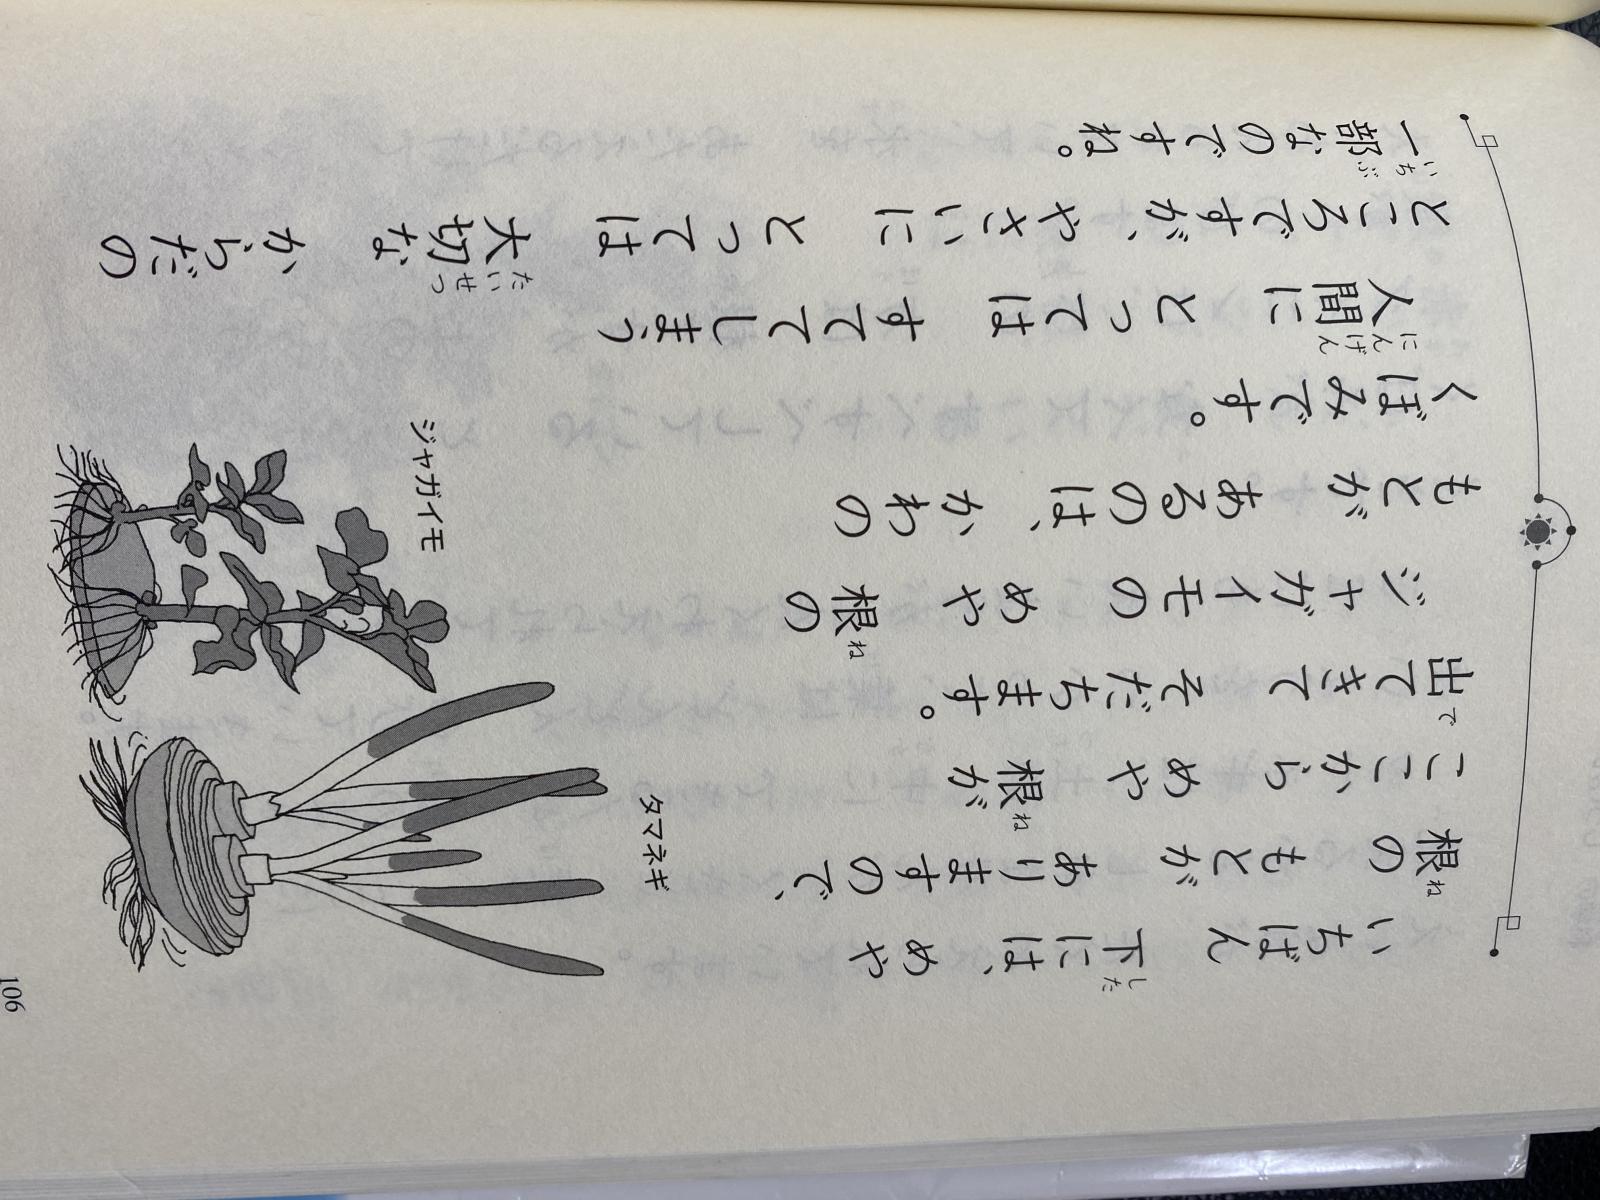 いちばん 下には、めや
根の もとが ありますので、
ここから めや 根が
出てきて そだちます。
ジャガイモの めや 根の
もとが あるのは、かわの
くぼみです。
人間に とっては すててしまう
ところですが、やさいに とっては 大切な からだの
一部なのですね。
タマネギ
ジャガイモ
106